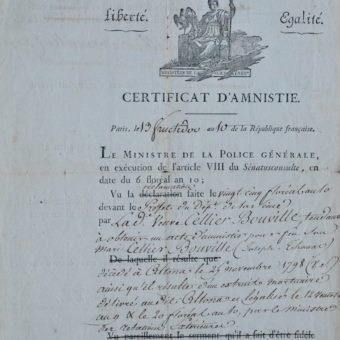 Liberté. Egalité.
MINISTERE DE LA POLICE GENERALE
CERTIFICAT D'AMNISTIE.
Paris, le 13 fructidor an 10 de la République française.
LE MINISTRE DE LA POLICE GÉNÉRALE,
en exécution de l'article VIII du Sénatusconsulte, en
date du 6 floréal an 10;
réclamation
Vu la déclaration faite le vingt cinq floréal an 10
devant le Préfet du Dépt de la Seine
par La de Veuve Cellier Bouville, tendante
à obtenir un acte d'amnistie pour feu son
Mari Cellier Bouville (Joseph
De laquelle il résulte que
décédé à Altona le 25 novembre 1798 (V.S.)
ainsi qu'il résulte d'un extrait mortuaire
délivré au dit Altona et légalisé le 12
an 9 & le 20 floréal an 10, par le ministre
des relations extérieures
Vu pareillement le serment qu'il a fait d'être fidèle